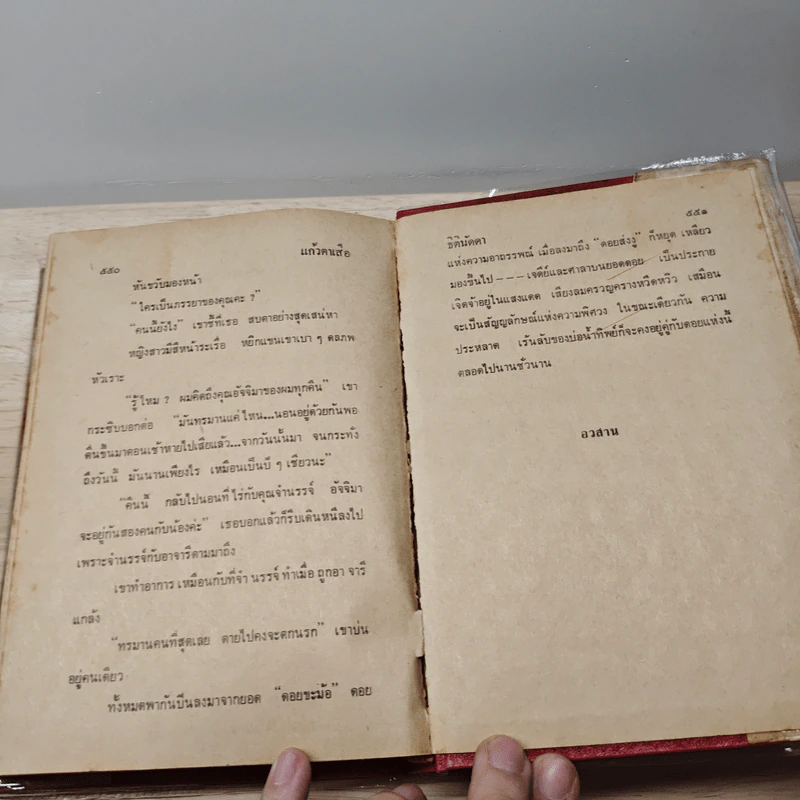 ๕๕๐
แก้วตาเสือ
หันขวับมองหน้า
“ใครเป็นภรรยาของคุณคะ ?”
“คนนี้ยังไง” เขาชี้ที่เธอ สบตาอย่างสุดเสน่หา
หญิงสาวมีสีหน้าระเรื่อ หยิกแขนเขาเบา ๆ ตลภพ
หัวเราะ
“รู้ไหม ? ผมคิดถึงคุณอัจจิมาของผมทุกคืน” เขา
กระซิบบอกต่อ “มันทรมานแค่ไหน...นอนอยู่ด้วยกันพอ
ตื่นขึ้นมาตอนเช้าหายไปเสียแล้ว...จากวันนั้นมา จนกระทั่ง
ถึงวันนี้ มันนานเพียงไร เหมือนเป็นปี ๆ เชียวนะ”
“คืนนี้ กลับไปนอนที่ไร่กับคุณจำนรรจ์ อัจจิมา
จะอยู่กันสองคนกับน้องค่ะ” เธอบอกแล้วก็รีบเดินหนีลงไป
เพราะจำนรรจ์กับอาจารีตามมาถึง
เขาทำอาการ เหมือนกับที่จำ นรรจ์ ทำเมื่อ ถูกอา จารี
แกล้ง
“ทรมานคนที่สุดเลย ตายไปคงจะตกนรก” เขาบ่น
อยู่คนเดียว
ทั้งหมดพากันปีนลงมาจากยอด “ดอยขะม้อ” ดอย
ธิตินัดดา
๕๕๑
แห่งความอาถรรพณ์ เมื่อลงมาถึง “ดอยส่งงู” ก็หยุด เหลียว
มองขึ้นไป --- เจดีย์และศาลาบนยอดดอย เป็นประกาย
เจิดจ้าอยู่ในแสงแดด เสียงลมครวญครางหวีดหวิว เสมือน
จะเป็นสัญญลักษณ์แห่งความพิศวง ในขณะเดียวกัน ความ
ประหลาด เร้นลับของบ่อน้ำทิพย์ก็จะคงอยู่คู่กับดอยแห่งนี้
ตลอดไปนานชั่วนาน
อวสาน